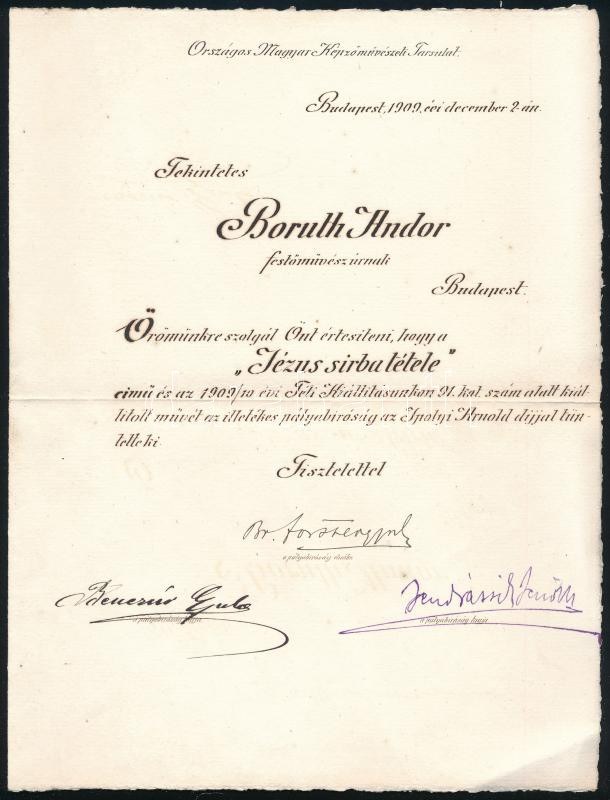 Országos Magyar Képzőművészek Társulat.
Budapest, 1909. évi december 2-án.
Tekintetes
Boruth Andor
festőművész úrnak
Budapest.
Örömünkre szolgál Önt értesíteni, hogy a
„Jézus sirba tétele”
cimű és az 1909/10 évi Téli Kiállításunkon 91. kat. szám alatt kiál-
lított művét az illetékes pályabíróság az Ipolyi Arnold díjjal tün-
tette ki.
Tisztelettel
Br. Forster Gyula
a pályabíróság elnöke
Benczúr Gyula
a pályabíróság tagja
Jendrassik Jenő
a pályabíróság tagja